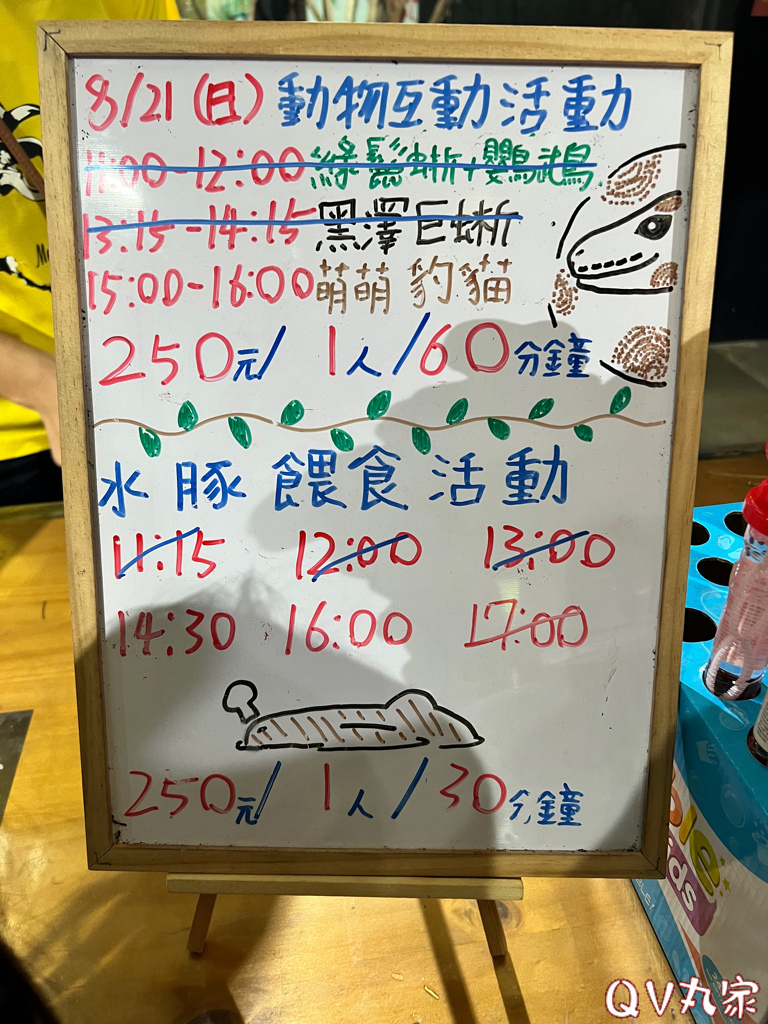 8/21(日)動物互動活動
11:00-12:00綠鬣蜥+鸚鵡
13:15-14:15黑澤巨蜥
15:00-16:00萌萌豹貓
250元/1人/60分鐘
水豚餵食活動
11:15 12:00 13:00
14:30 16:00 17:00
250元/1人/30分鐘
QV丸家